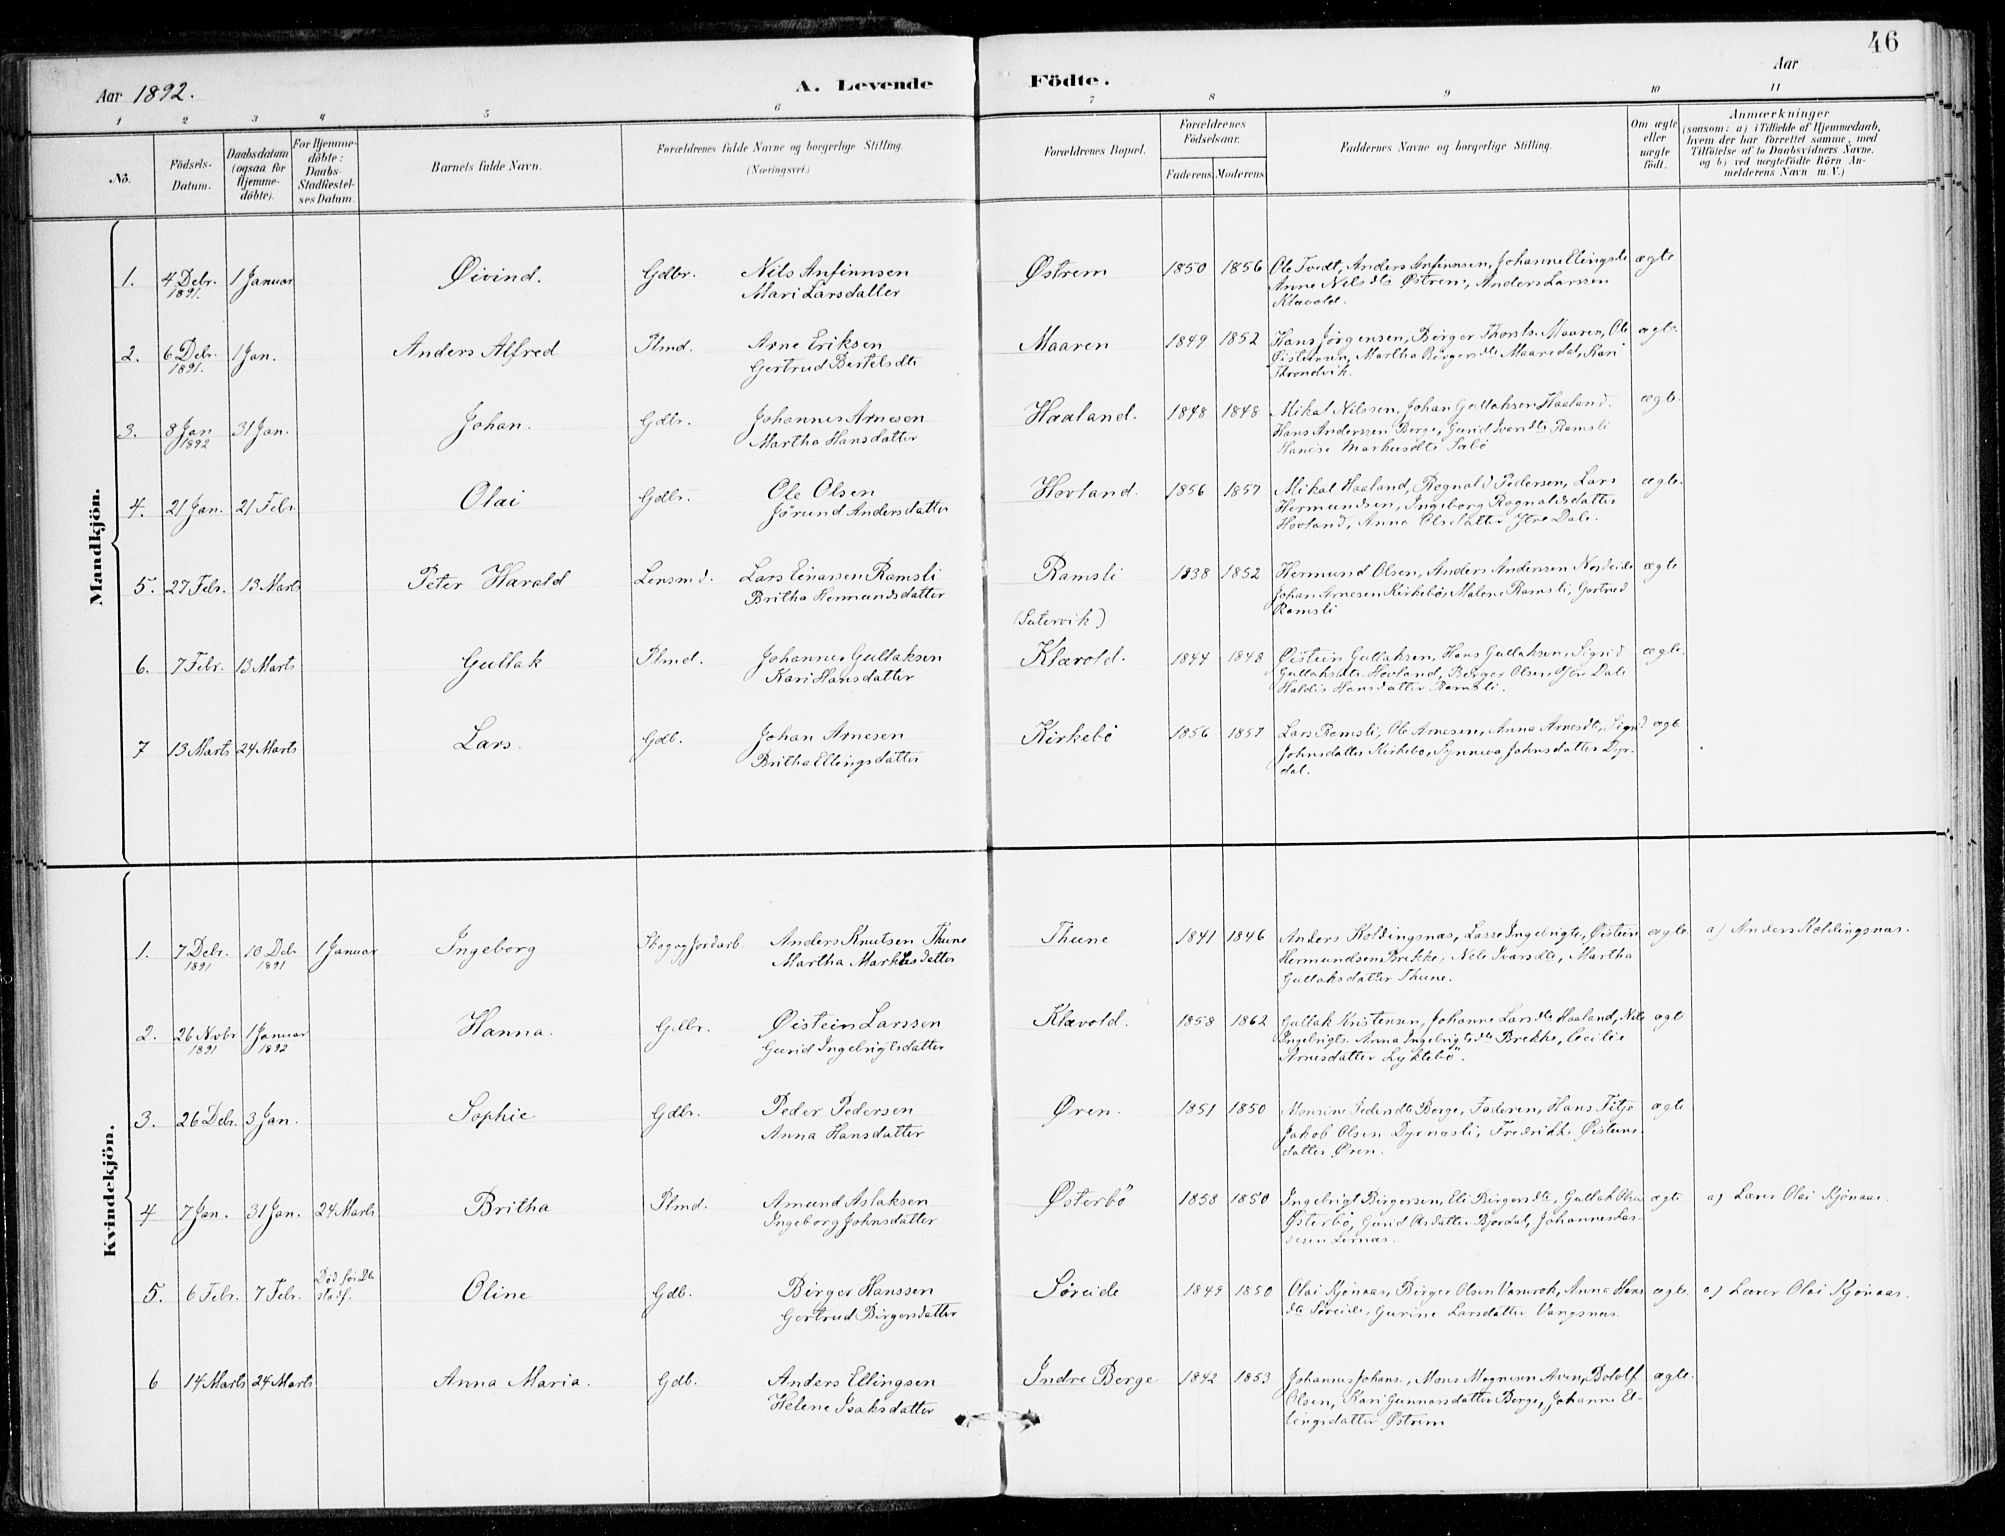 46
Aar 1892. A. Levende Födte. Aar
1 2 3 4 5 6 7 8 9 10 11
No. Födsels-Datum. Daabsdatum (ogsaa for Hjemmedöbte). For Hjemmedöbte: Daabs-Stadfæstelses Datum. Barnets fulde Navn. Forældrenes fulde Navne og borgerlige Stilling. (Næringsvei.) Forældrenes Bopæl. Forældrenes Födselsaar. Faderens Moderens Faddernes Navne og borgerlige Stilling. Om ægte eller uægte födt. Anmærkninger (saasom: a) i Tilfælde af Hjemmedaab, hvem der har forrettet samme, med Tilföielse af to Daabsvidners Navne, og b) ved uægtefödte Börn Anmelderens Navn m. V.)
Mandkjön.
1. 4 Debr. 1891. 1 Januar Øivind. Gdbr. Nils Anfinnsen Østrem 1850 1856 Ole Tvedt, Anders Anfinnsen, Johanne Ellingsdt ægte
Mari Larsdatter Anne Nilsdtr Østrem, Anders Larssen
Klævold.
2. 6 Debr. 1891. 1 Jan. Anders Alfred Plmd. Arne Eriksen Maaren 1849 1852 Hans Jørgensen, Børger Thorsts. Maaren, Ole ægte.
Gertrud Bertelsdtr Øisteinsen, Martha Børgersdtr Maaredal, Kari
Throndvik.
3. 8 Jan 1892 31 Jan. Johan. Gdbr. Johannes Arnesen Haaland. 1848 1848 Mikal Nilssen, Johan Gullaksen Haaland. ægte.
Martha Hansdatter Hans Anderssen Berge, Gurid Ivarsdtr Ramsli
Hanise Markusdtr Salbø
4. 21 Jan. 21 Febr. Olai Gdbr. Ole Olsen Hovland. 1856 1857 Mikal Haaland, Ragnald Pedersen, Lars ægte.
Jørund Andersdatter Hermundsen, Ingeborg Ragnaldsdatter
Hovland, Anna Olsdatter Ytre Dale.
5. 27 Febr. 13 Marts Peter Harald Lensmd. Lars Einarsen Ramsli Ramsli 1838 1852 Hermund Olsen, Anders Andersen Nordeide ægte
Britha Hermundsdatter Johan Arnesen Kirkebø, Malene Ramsli, Gertrud
(Sætervik) Ramsli
6. 7 Febr. 13 Marts Gullak Plmd. Johannes Gullaksen Klævold. 1844 1848 Øistein Gullaksen, Hans Gullaksen, Sigrid ægte.
Kari Hansdatter Gullaksdtr. Hovland, Børger Olsen Ytre Dale
Haldis Hansdatter Ramsli.
7 13 Marts 24 Marts Lars. Gdb. Johan Arnesen Kirkebø 1856 1857 Lars Ramsli, Ole Arnesen, Anna Arnesdtr, Sigrid ægte
Britha Ellingsdatter Johnsdatter Kirkebø, Synneva Johnsdatter Dyr-
dal.
Kvindekjön.
1. 7 Debr. 1891 10 Debr 1891 1 Januar Ingeborg Skog og Jordarb. Anders Knutsen Thune Thune 1841 1846 Anders Koldingsnæs, Lasse Ingebrigts, Øistein ægte a) Anders Koldingsnæs.
Martha Markusdatter Hermundsen Brekke, Nele Ivarsdtr, Martha
Gullaksdatter Thune.
2. 26 Novbr 1891 1 Januar 1892 Hanna. Gdbr. Øistein Larssen Klævold. 1858 1862 Gullak Kristensen, Johanne Larsdtr Haaland, Nils ægte
Gurid Ingebrigtsdatter Ingebrigts. Anna Ingebrigtsdtr Brekke, Cecilie
Arnesdatter Lyktebø.
3. 26 Debr. 3 Jan. Sophie Gdbr. Peder Pedersen Øren. 1851 1850 Monsine Pedersdtr Berge, Faderen, Hans Fitje ægte
Anna Hansdatter Jakob Olsen Dyrnæsli, Fredrikke Øisteins-
datter Øren.
4 7 Jan. 31 Jan. 24 Marts Britha Plmd. Amund Aslaksen Østerbø 1858 1850 Ingebrigt Børgersen, Eli Børgersdtr, Gullak Olsen ægte a) Lærer Olai Kjønaas.
Ingeborg Johnsdatter Østerbø, Gurid Olsdatter Bjordal, Johannes Las-
sesen Lernæs.
5. 6 Febr. 7 Febr. Død før Db. stadf. Oline Gdb. Børger Hanssen Søreide 1849 1850 Olai Kjønaas, Børger Olsen Vamrok, Anna Hans ægte. a) Lærer Olai Kjønaas.
Gertrud Børgersdatter dtr Søreide, Gurine Larsdatter Vangsnæs.
6 14 Marts 24 Marts Anna Maria. Gdb. Anders Ellingsen Indre Berge 1842 1853 Johannes Johans., Mons Mognesen Aven, Botolf ægte.
Helene Isaksdatter Olsen, Kari Gunnarsdatter Berge, Johanne El-
lingsdatter Østrem